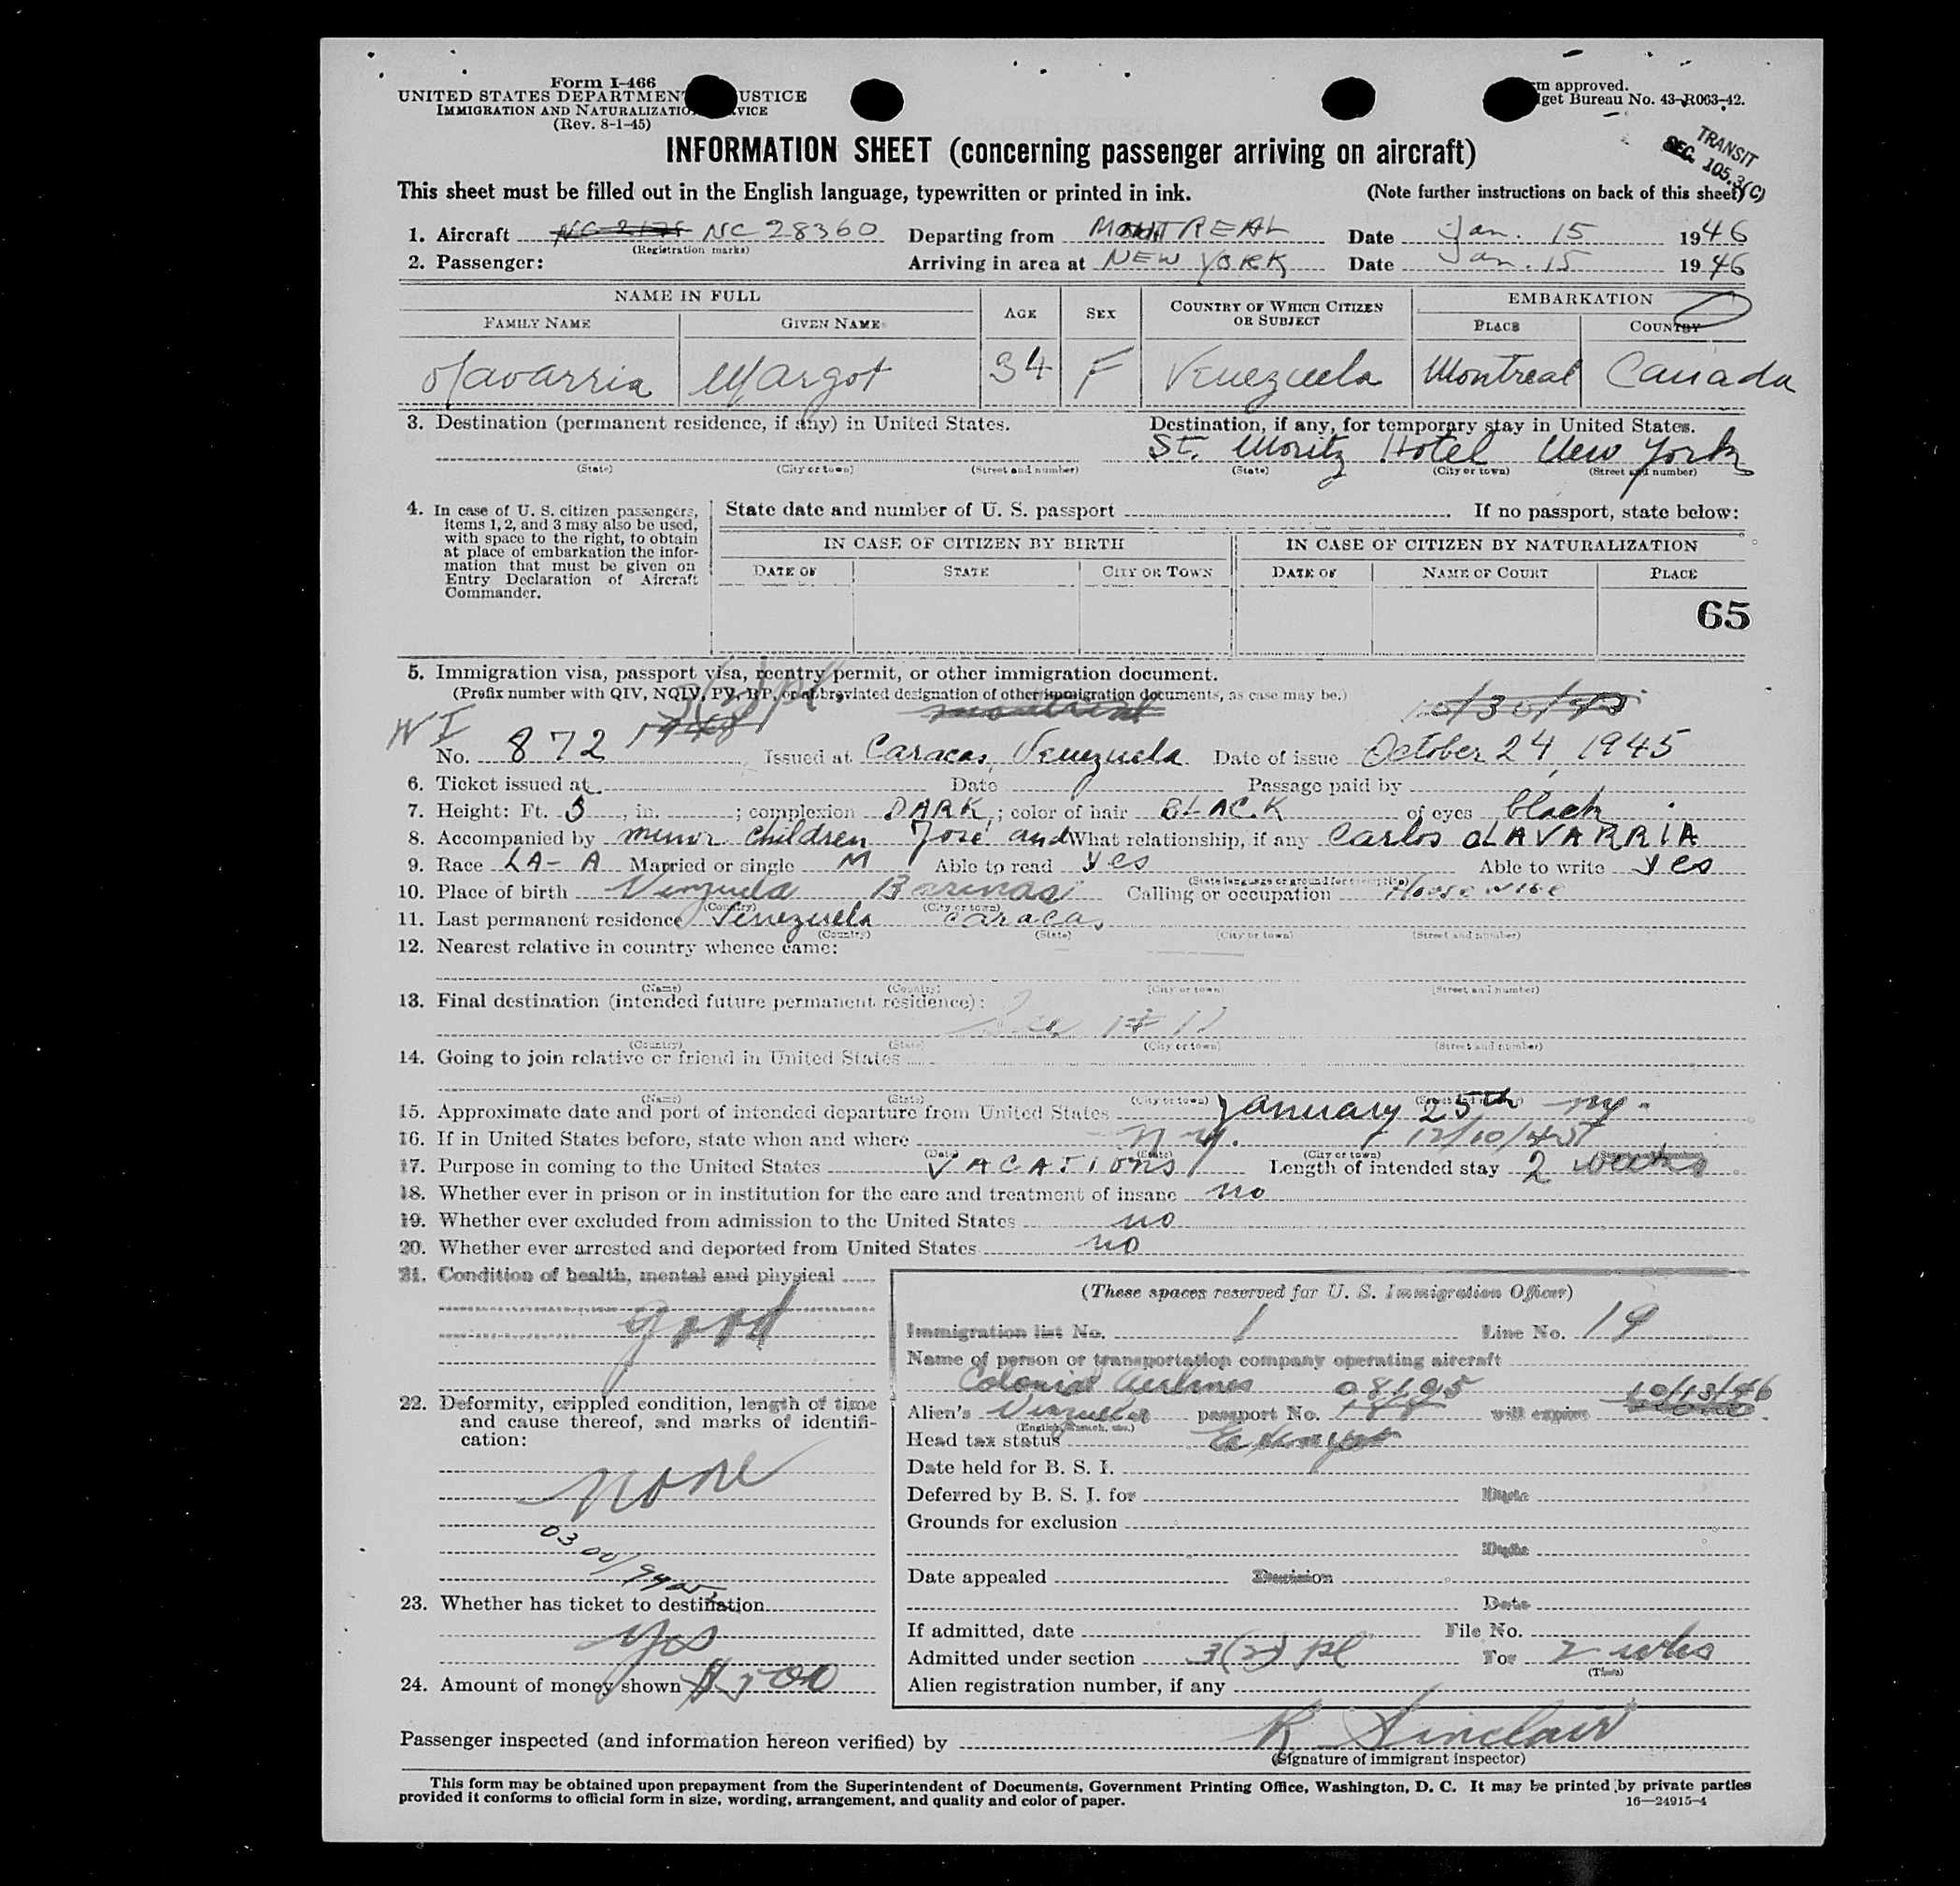 Form I-466
UNITED STATES DEPARTMENT USTICE
IMMIGRATION AND NATURALIZATIO VICE
(Rev. 8-1-45)
m approved.
get Bureau No. 43-R063-42.
TRANSIT
SEC. 105.3(C)
INFORMATION SHEET (concerning passenger arriving on aircraft)
This sheet must be filled out in the English language, typewritten or printed in ink. (Note further instructions on back of this sheet)
1. Aircraft NC 28360 Departing from MONTREAL Date Jan. 15 1946
(Registration marks)
2. Passenger: Arriving in area at NEW YORK Date Jan. 15 1946
NAME IN FULL AGE SEX COUNTRY OF WHICH CITIZEN OR SUBJECT EMBARKATION
FAMILY NAME GIVEN NAME PLACE COUNTRY
olavarria Margot 34 F Venezuela Montreal Canada
3. Destination (permanent residence, if any) in United States. Destination, if any, for temporary stay in United States.
St. Moritz Hotel New York
(State) (City or town) (Street and number) (State) (City or town) (Street and number)
4. In case of U. S. citizen passengers, items 1, 2, and 3 may also be used, with space to the right, to obtain at place of embarkation the information that must be given on Entry Declaration of Aircraft Commander.
State date and number of U. S. passport If no passport, state below:
IN CASE OF CITIZEN BY BIRTH IN CASE OF CITIZEN BY NATURALIZATION
DATE OF STATE CITY OR TOWN DATE OF NAME OF COURT PLACE
65
5. Immigration visa, passport visa, reentry permit, or other immigration document.
(Prefix number with QIV, NQIV, PV, RP, or abbreviated designation of other immigration documents, as case may be.)
3(2) pl. montreal 10/30/45
No. 872 Issued at Caracas, Venezuela Date of issue October 24, 1945
6. Ticket issued at Date Passage paid by
7. Height: Ft. 5, in. ; complexion DARK; color of hair BLACK of eyes black
8. Accompanied by minor children José and What relationship, if any Carlos OLAVARRIA
9. Race LA-A Married or single M Able to read yes Able to write yes
(State language or ground for exemption)
10. Place of birth Venzuela Barinas Calling or occupation Housewife
(Country) (City or town)
11. Last permanent residence Venezuela Caracas
(Country) (State) (City or town) (Street and number)
12. Nearest relative in country whence came:
(Name) (Country) (City or town) (Street and number)
13. Final destination (intended future permanent residence):
See # 11
(Country) (State) (City or town) (Street and number)
14. Going to join relative or friend in United States
(Name) (State) (City or town) (Street and number)
15. Approximate date and port of intended departure from United States January 25th ny.
16. If in United States before, state when and where N.Y. 12/10/45
(Date) (State) (City or town) (Street and number)
17. Purpose in coming to the United States VACATIONS Length of intended stay 2 weeks
18. Whether ever in prison or in institution for the care and treatment of insane no
19. Whether ever excluded from admission to the United States no
20. Whether ever arrested and deported from United States no
21. Condition of health, mental and physical
good
22. Deformity, crippled condition, length of time
and cause thereof, and marks of identifi-
cation:
none
23. Whether has ticket to destination
yes
24. Amount of money shown $500
(These spaces reserved for U. S. Immigration Officer)
Immigration list No. 1 Line No. 19
Name of person or transportation company operating aircraft
Colonial Airlines 08195 10/13/46
Alien's Venzuelan passport No. will expire
(English, French, etc.)
Head tax status Exempt
Date held for B. S. I.
Deferred by B. S. I. for Date
Grounds for exclusion
Date
Date appealed Decision
Date
If admitted, date File No.
Admitted under section 3(2) pl For 2 wks
(Time)
Alien registration number, if any
Passenger inspected (and information hereon verified) by R Sinclair
(Signature of immigrant inspector)
This form may be obtained upon prepayment from the Superintendent of Documents, Government Printing Office, Washington, D. C. It may be printed by private parties
provided it conforms to official form in size, wording, arrangement, and quality and color of paper. 16—24915-4